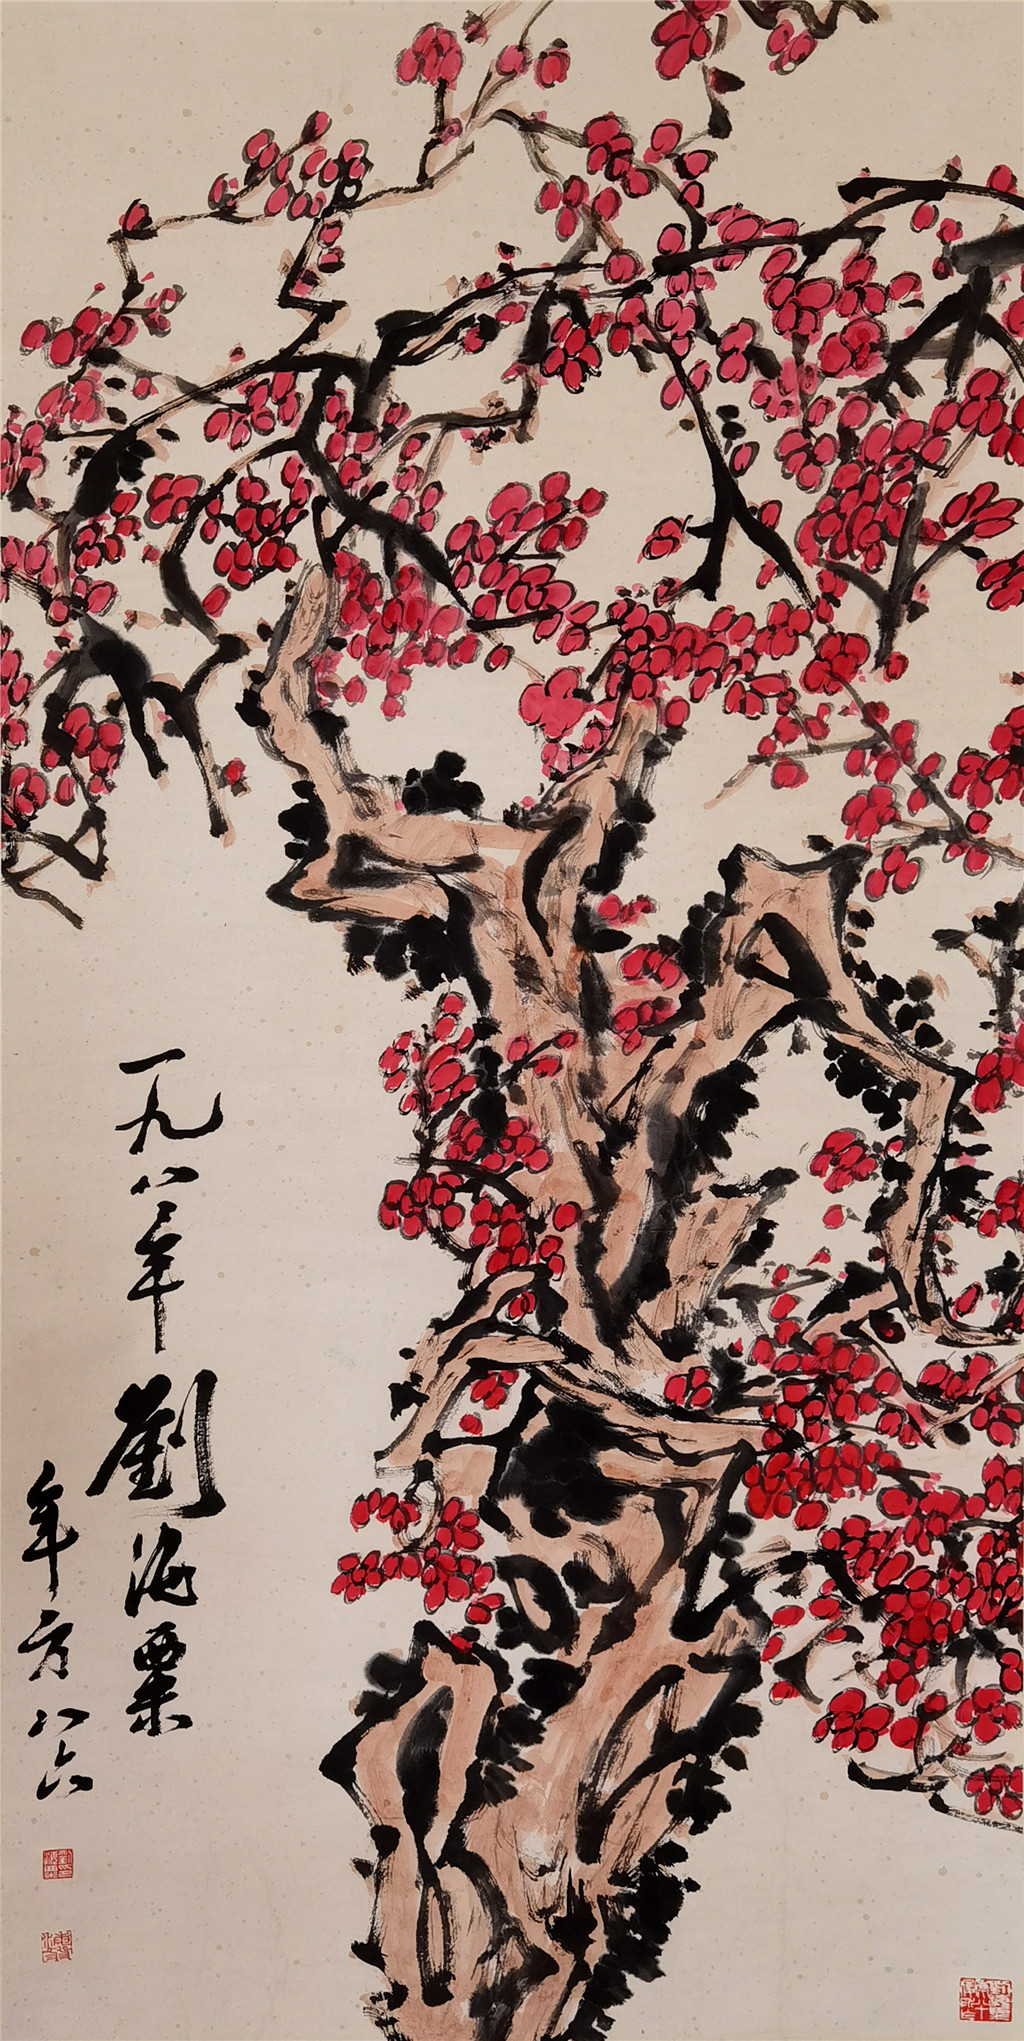 一九八一年 劉海粟
年方八六